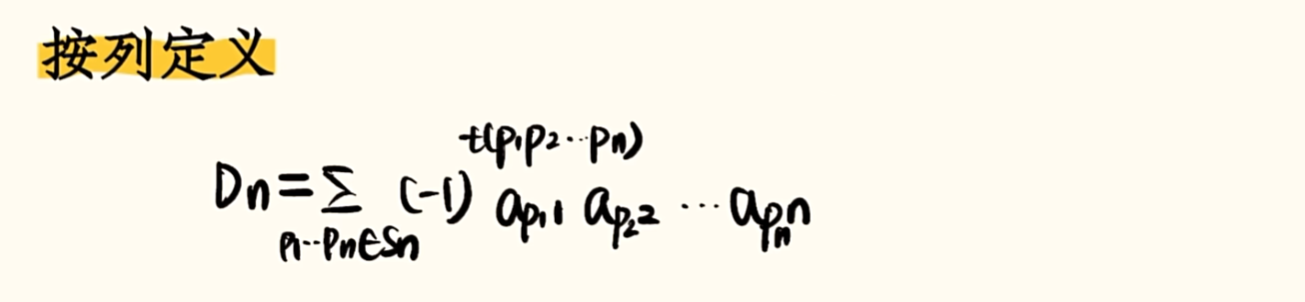 按列定义
Dn = Σ_{p₁…pn∈Sn} (-1)^{t(p₁p₂…pn)} a_{p₁1} a_{p₂2} … a_{pₙn}